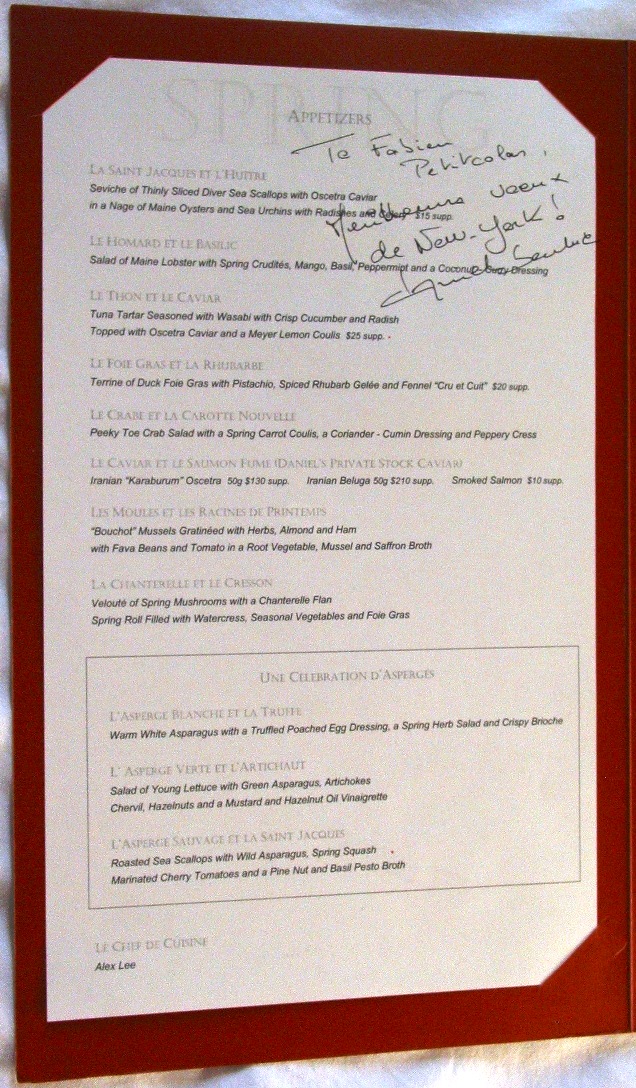 SPRING
APPETIZERS
To Fabien
Petitcolas,
Meilleurs voeux
de New-York!
LA SAINT JACQUES ET L'HUITRE
Seviche of Thinly Sliced Diver Sea Scallops with Oscetra Caviar
in a Nage of Maine Oysters and Sea Urchins with Radishes and Celery $15 supp.
LE HOMARD ET LE BASILIC
Salad of Maine Lobster with Spring Crudités, Mango, Basil, Peppermint and a Coconut Dressing
LE THON ET LE CAVIAR
Tuna Tartar Seasoned with Wasabi with Crisp Cucumber and Radish
Topped with Oscetra Caviar and a Meyer Lemon Coulis $25 supp.
LE FOIE GRAS ET LA RHUBARBE
Terrine of Duck Foie Gras with Pistachio, Spiced Rhubarb Gelée and Fennel "Cru et Cuit" $20 supp.
LE CRABE ET LA CAROTTE NOUVELLE
Peeky Toe Crab Salad with a Spring Carrot Coulis, a Coriander - Cumin Dressing and Peppery Cress
LE CAVIAR ET LE SAUMON FUME (DANIEL'S PRIVATE STOCK CAVIAR)
Iranian "Karaburum" Oscetra 50g $130 supp. Iranian Beluga 50g $210 supp. Smoked Salmon $10 supp.
LES MOULES ET LES RACINES DE PRINTEMPS
"Bouchot" Mussels Gratinéed with Herbs, Almond and Ham
with Fava Beans and Tomato in a Root Vegetable, Mussel and Saffron Broth
LA CHANTERELLE ET LE CRESSON
Velouté of Spring Mushrooms with a Chanterelle Flan
Spring Roll Filled with Watercress, Seasonal Vegetables and Foie Gras
UNE CELEBRATION D'ASPERGES
L'ASPERGE BLANCHE ET LA TRUFFE
Warm White Asparagus with a Truffled Poached Egg Dressing, a Spring Herb Salad and Crispy Brioche
L' ASPERGE VERTE ET L'ARTICHAUT
Salad of Young Lettuce with Green Asparagus, Artichokes
Chervil, Hazelnuts and a Mustard and Hazelnut Oil Vinaigrette
L'ASPERGE SAUVAGE ET LA SAINT JACQUES
Roasted Sea Scallops with Wild Asparagus, Spring Squash
Marinated Cherry Tomatoes and a Pine Nut and Basil Pesto Broth
LE CHEF DE CUISINE
Alex Lee